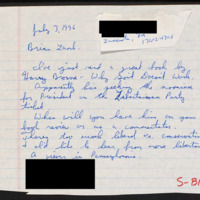 July 7, 1996
PA
Brian Lamb.
I've just read a great book by
Harry Browne - Why Govt Doesn't Work.
Apparently he's seeking the nominee
for President in the Libertarian Party
ticket
When will you have him on your
book review or as a commentator.
too much liberal vs. conservative
I'd like to hear from more libertarians
A viewer in Pennsylvania